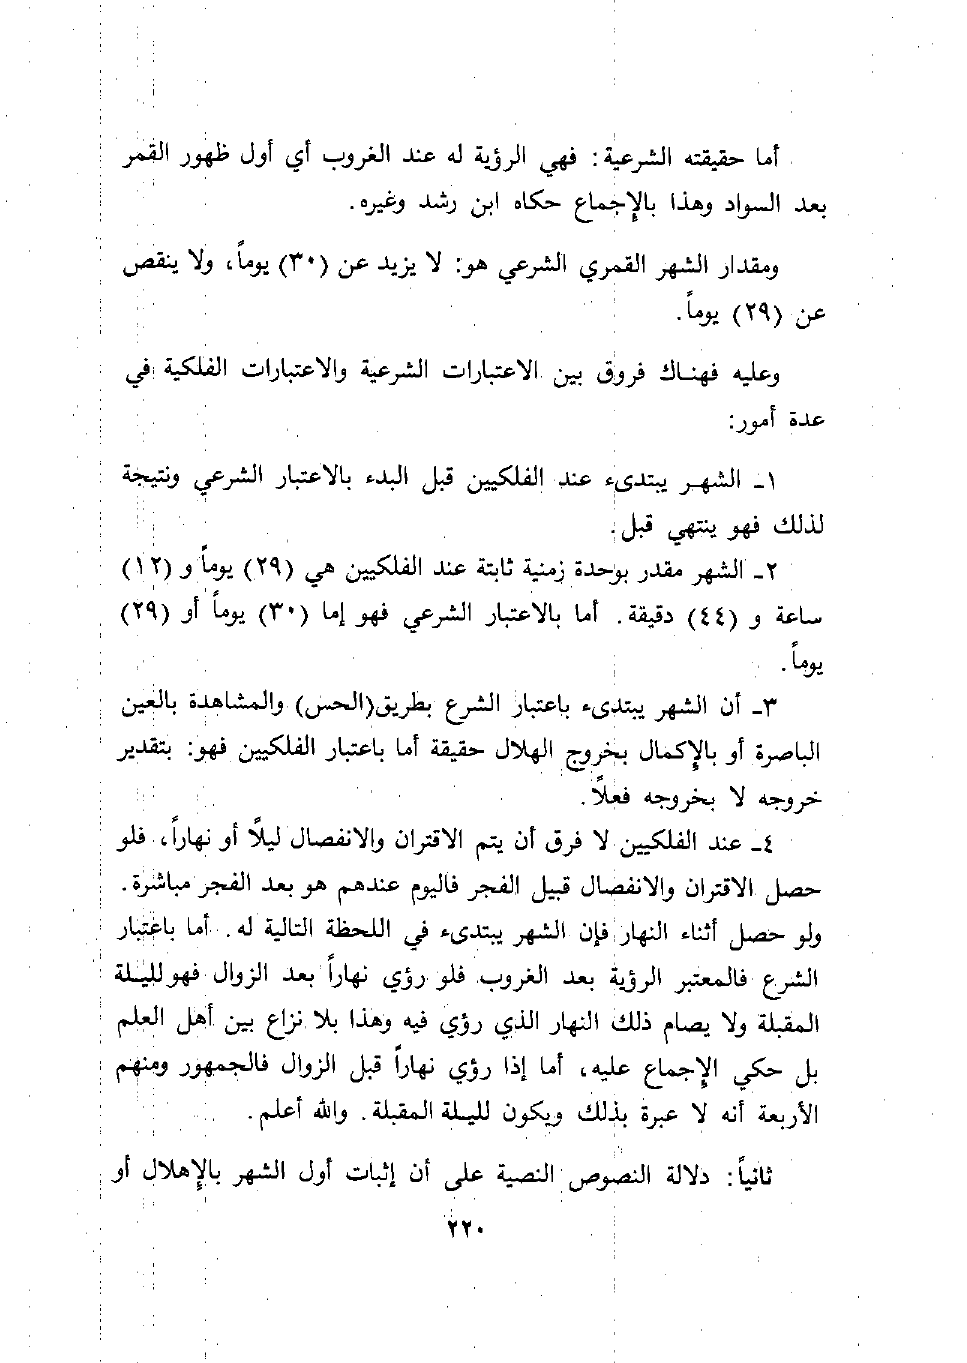 أما حقيقته الشرعية: فهي الرؤية له عند الغروب أي أول ظهور القمر
بعد السواد وهذا بالإجماع حكاه ابن رشد وغيره.
ومقدار الشهر القمري الشرعي هو: لا يزيد عن (٣٠) يوماً، ولا ينقص
عن (٢٩) يوماً.
وعليه فهناك فروق بين الاعتبارات الشرعية والاعتبارات الفلكية في
عدة أمور:
١ـ الشهر يبتدىء عند الفلكيين قبل البدء بالاعتبار الشرعي ونتيجة
لذلك فهو ينتهي قبل.
٢ـ الشهر مقدر بوحدة زمنية ثابتة عند الفلكيين هي (٢٩) يوماً و (١٢)
ساعة و (٤٤) دقيقة. أما بالاعتبار الشرعي فهو إما (٣٠) يوماً أو (٢٩)
يوماً.
٣ـ أن الشهر يبتدىء باعتبار الشرع بطريق(الحس) والمشاهدة بالعين
الباصرة أو بالإكمال بخروج الهلال حقيقة أما باعتبار الفلكيين فهو: بتقدير
خروجه لا بخروجه فعلاً.
٤ـ عند الفلكيين لا فرق أن يتم الاقتران والانفصال ليلاً أو نهاراً، فلو
حصل الاقتران والانفصال قبيل الفجر فاليوم عندهم هو بعد الفجر مباشرة.
ولو حصل أثناء النهار فإن الشهر يبتدىء في اللحظة التالية له. أما باعتبار
الشرع فالمعتبر الرؤية بعد الغروب فلو رؤي نهاراً بعد الزوال فهو لليلة
المقبلة ولا يصام ذلك النهار الذي رؤي فيه وهذا بلا نزاع بين أهل العلم
بل حكي الإجماع عليه، أما إذا رؤي نهاراً قبل الزوال فالجمهور ومنهم
الأربعة أنه لا عبرة بذلك ويكون لليلة المقبلة. والله أعلم.
ثانياً: دلالة النصوص النصية على أن إثبات أول الشهر بالإهلال أو
٢٢٠